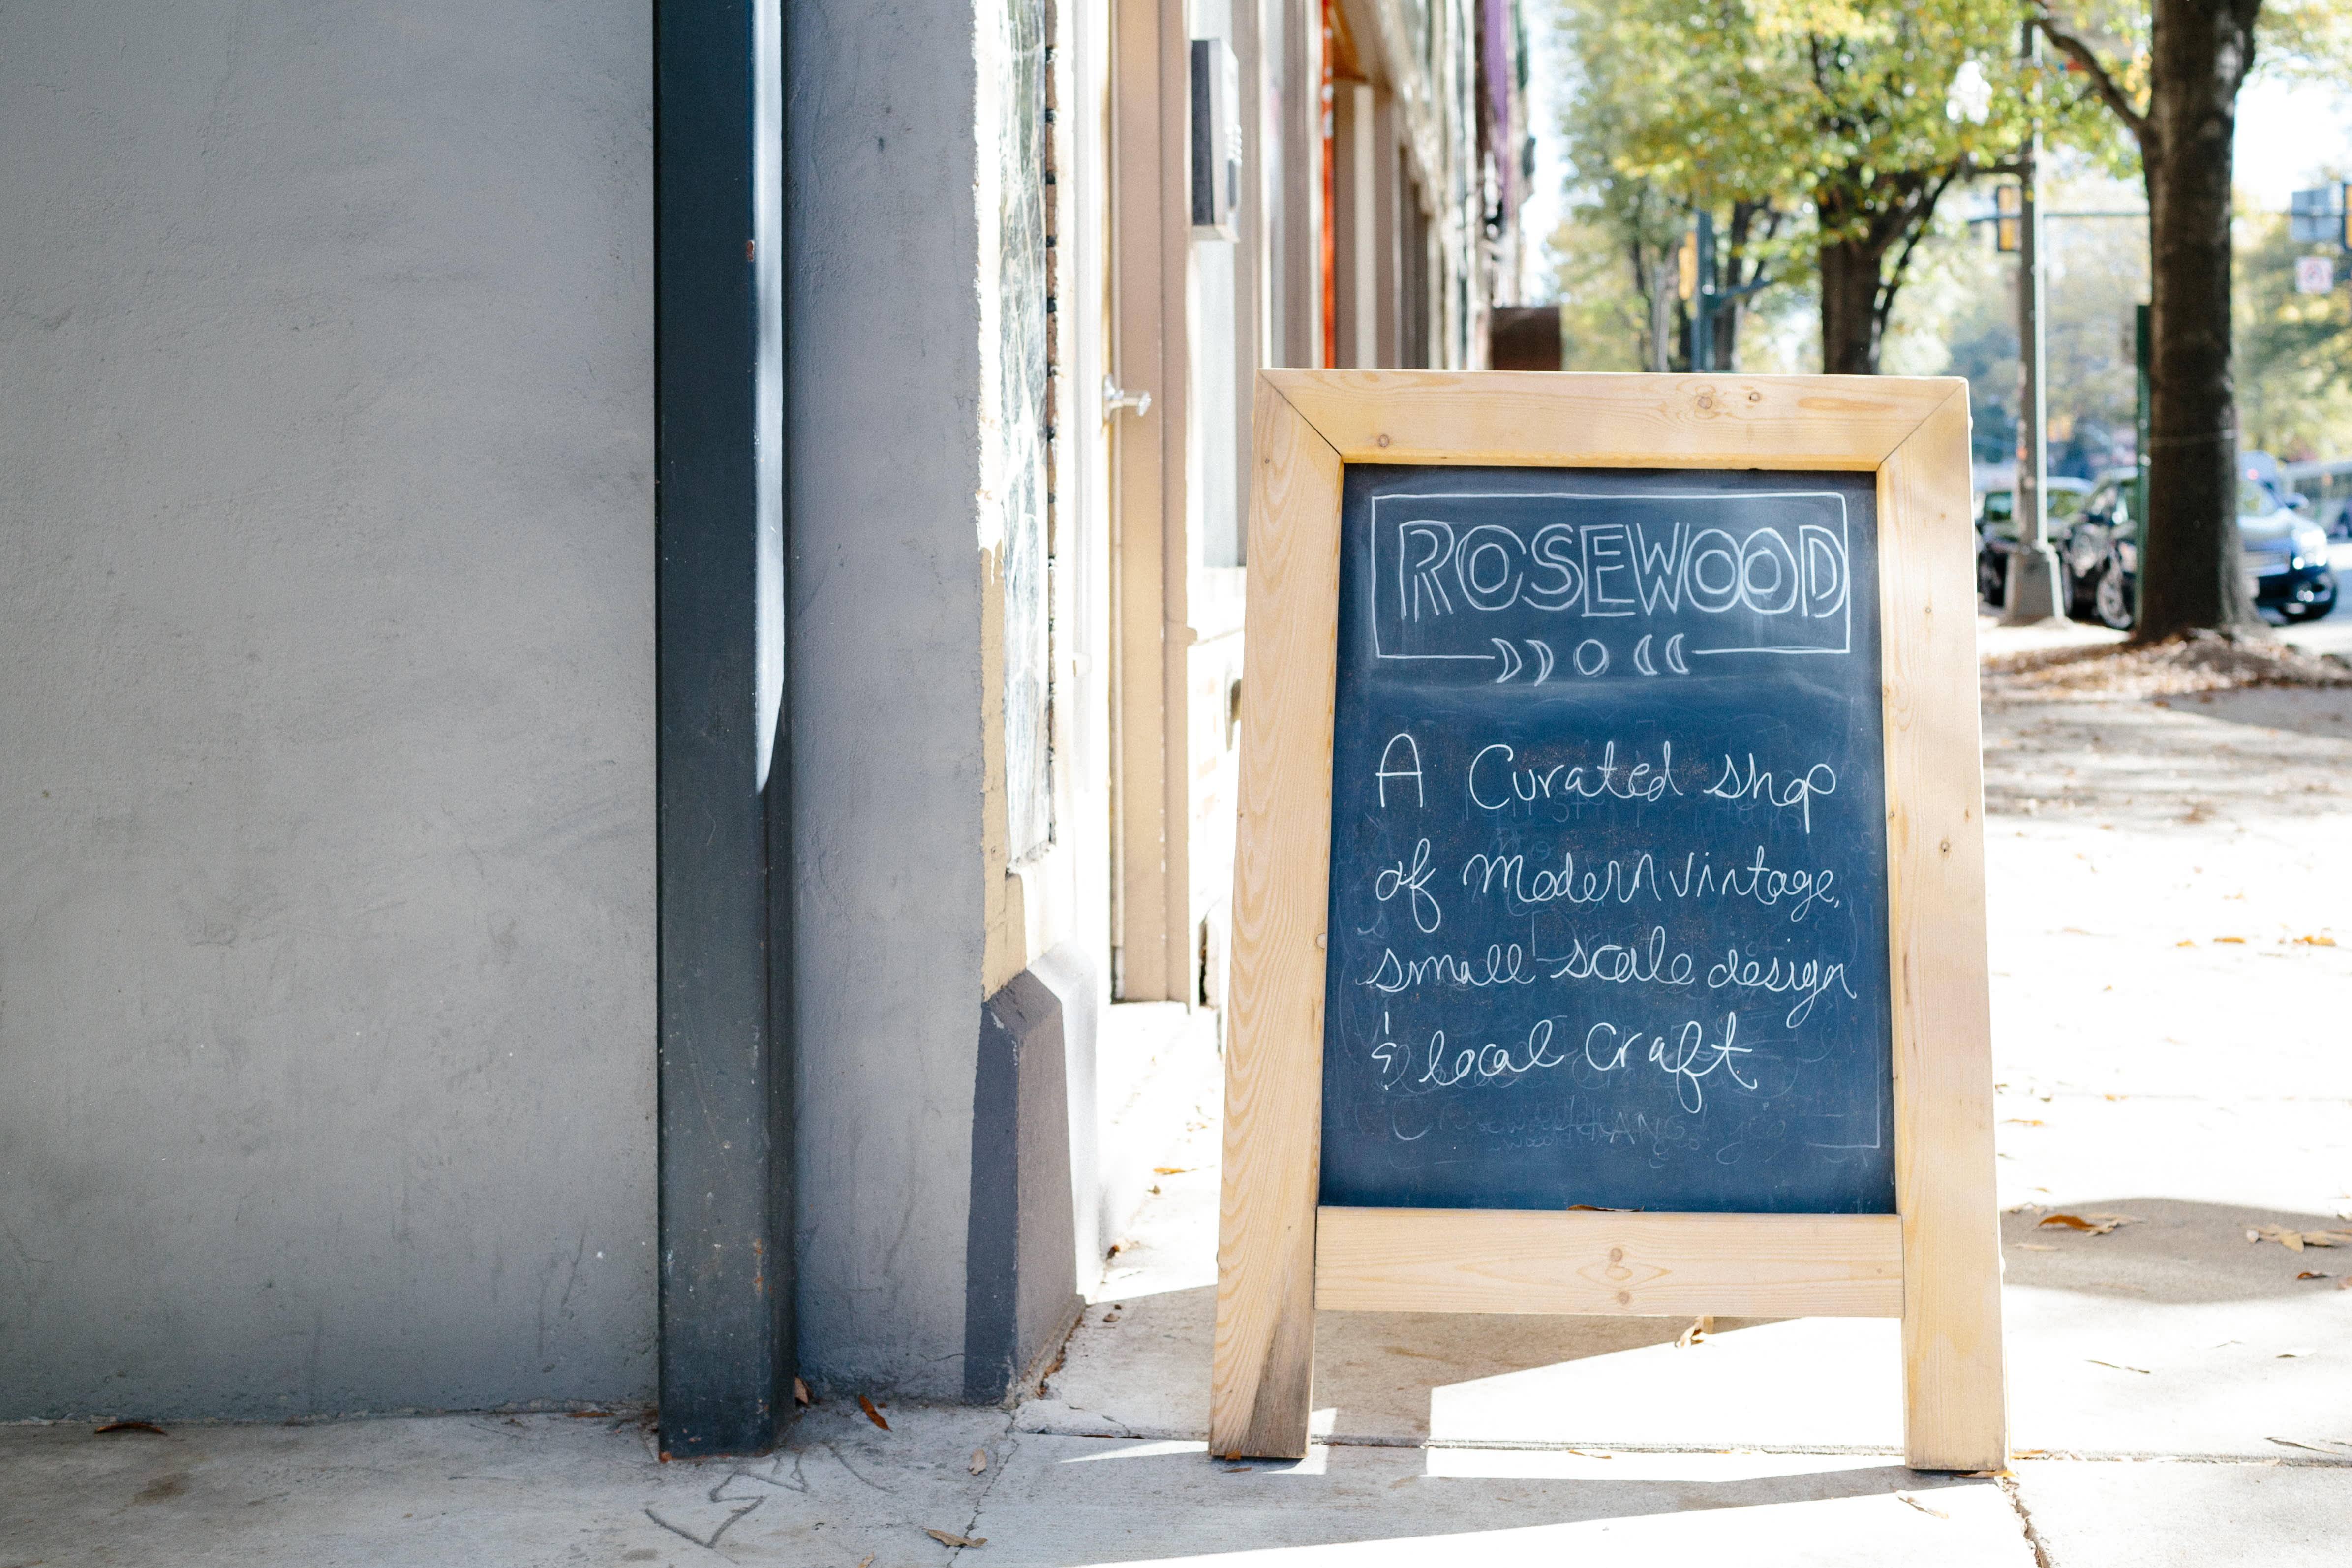 ROSEWOOD
A Curated shop
of Modern Vintage,
small scale design
& local Craft